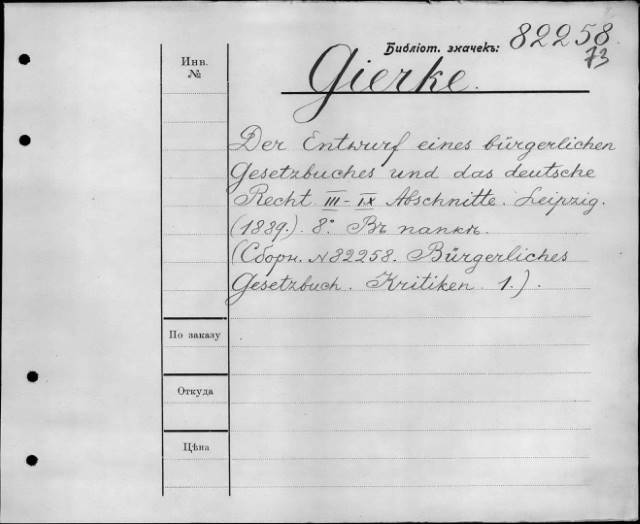 Библіот. значекъ: 82258
73
Инв.
№
Gierke.
Der Entwurf eines bürgerlichen
Gesetzbuches und das deutsche
Recht III-IX Abschnitte. Leipzig.
(1889.) 8° Въ папкѣ.
(Сборн. №82258. Bürgerliches
Gesetzbuch. Kritiken 1.).
По заказу
Откуда
Цѣна